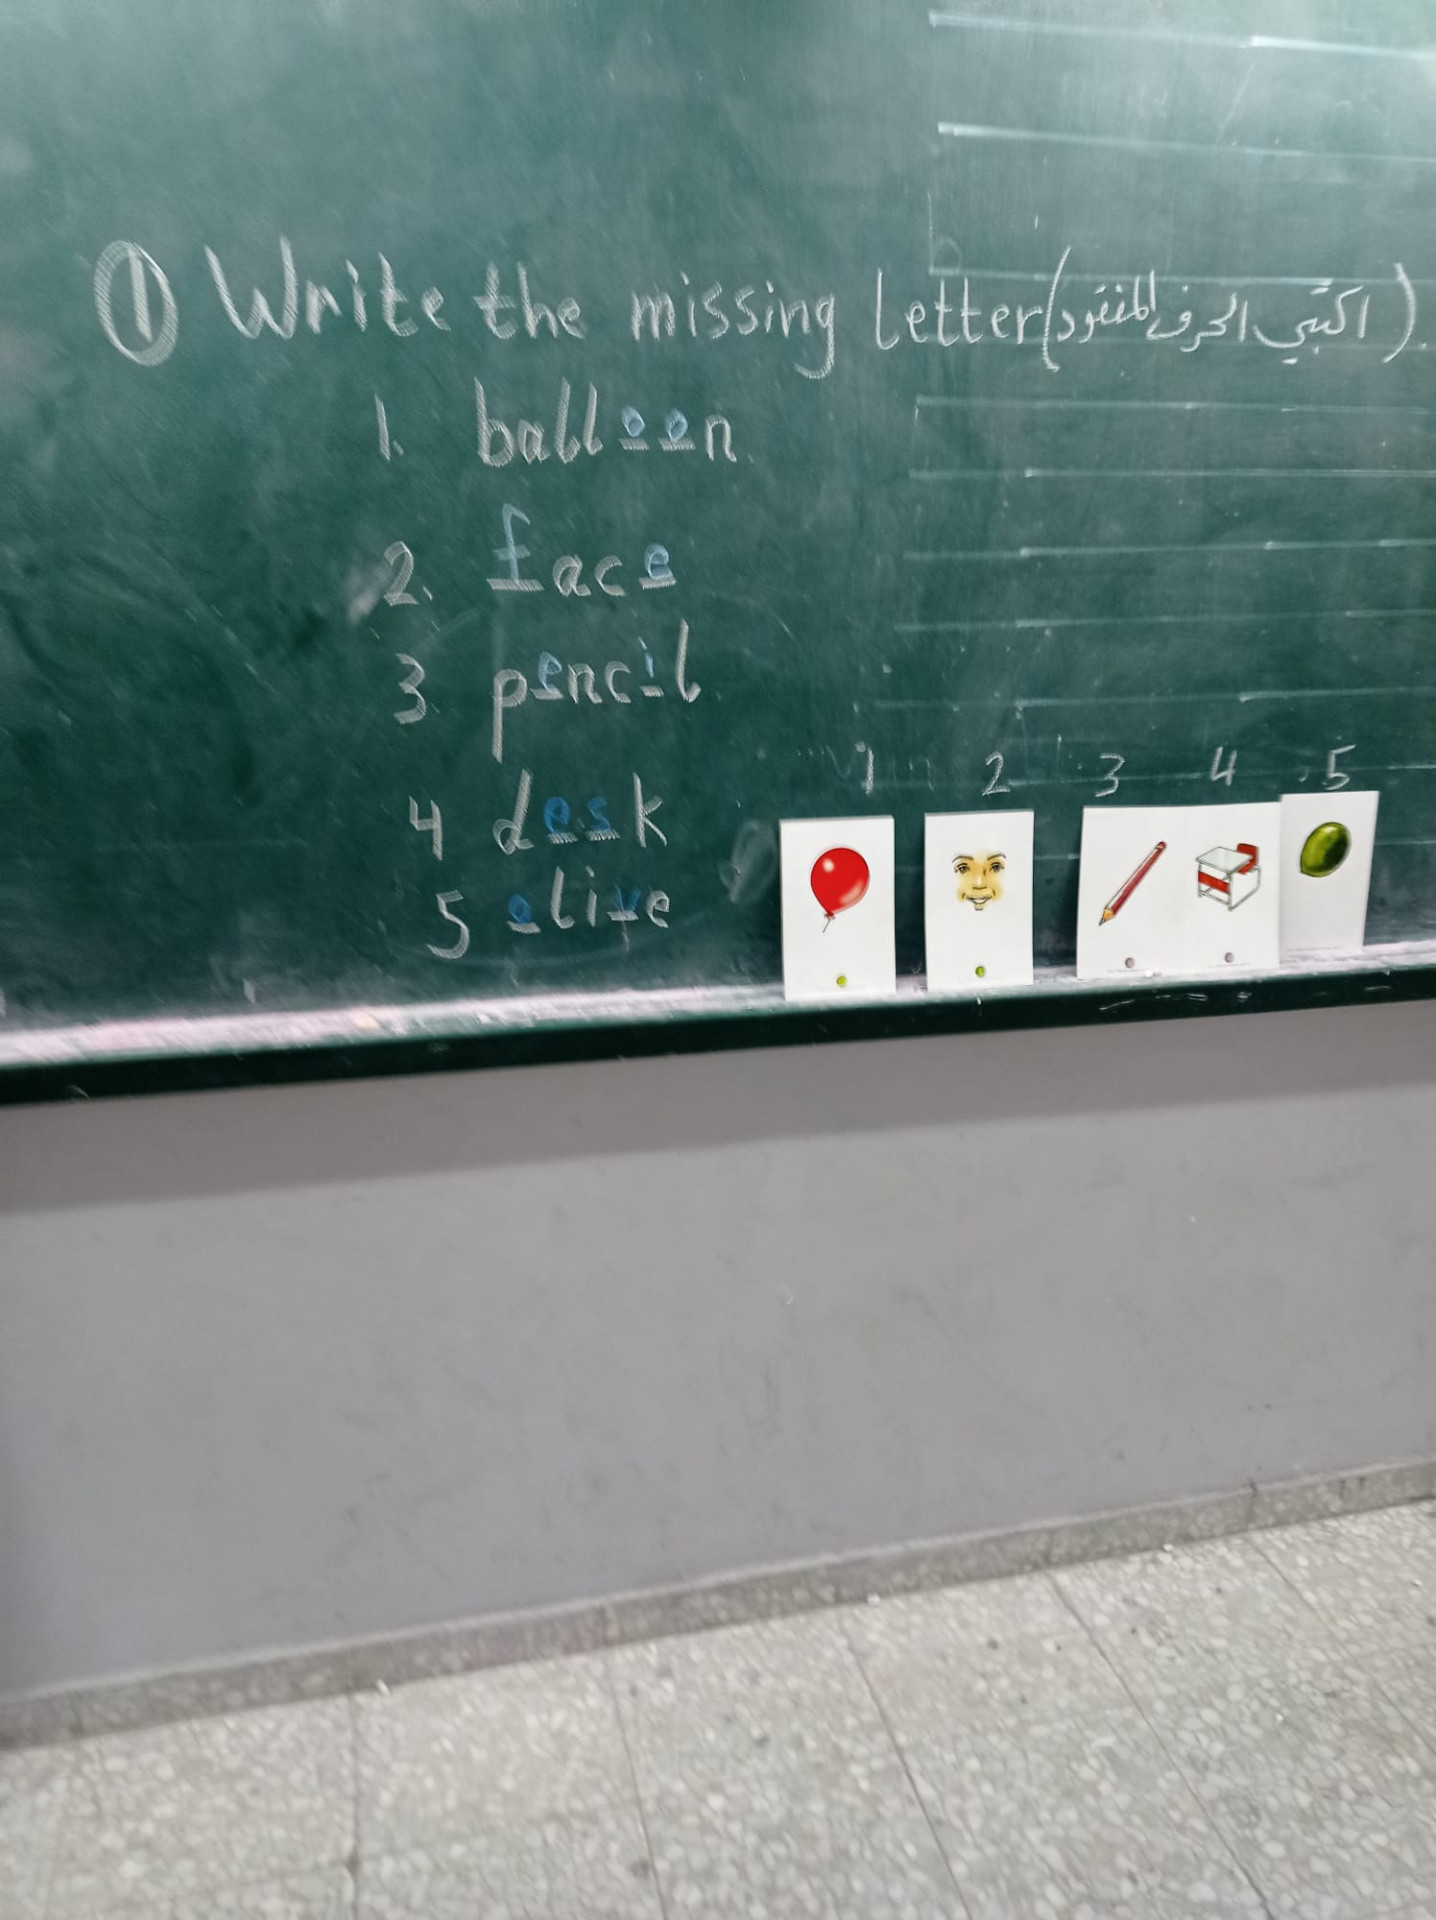 ① Write the missing letter (اكتبي الحرف المفقود).
1. balloon
2. face
3 pencil
4 desk
5 olive
1 2 3 4 5